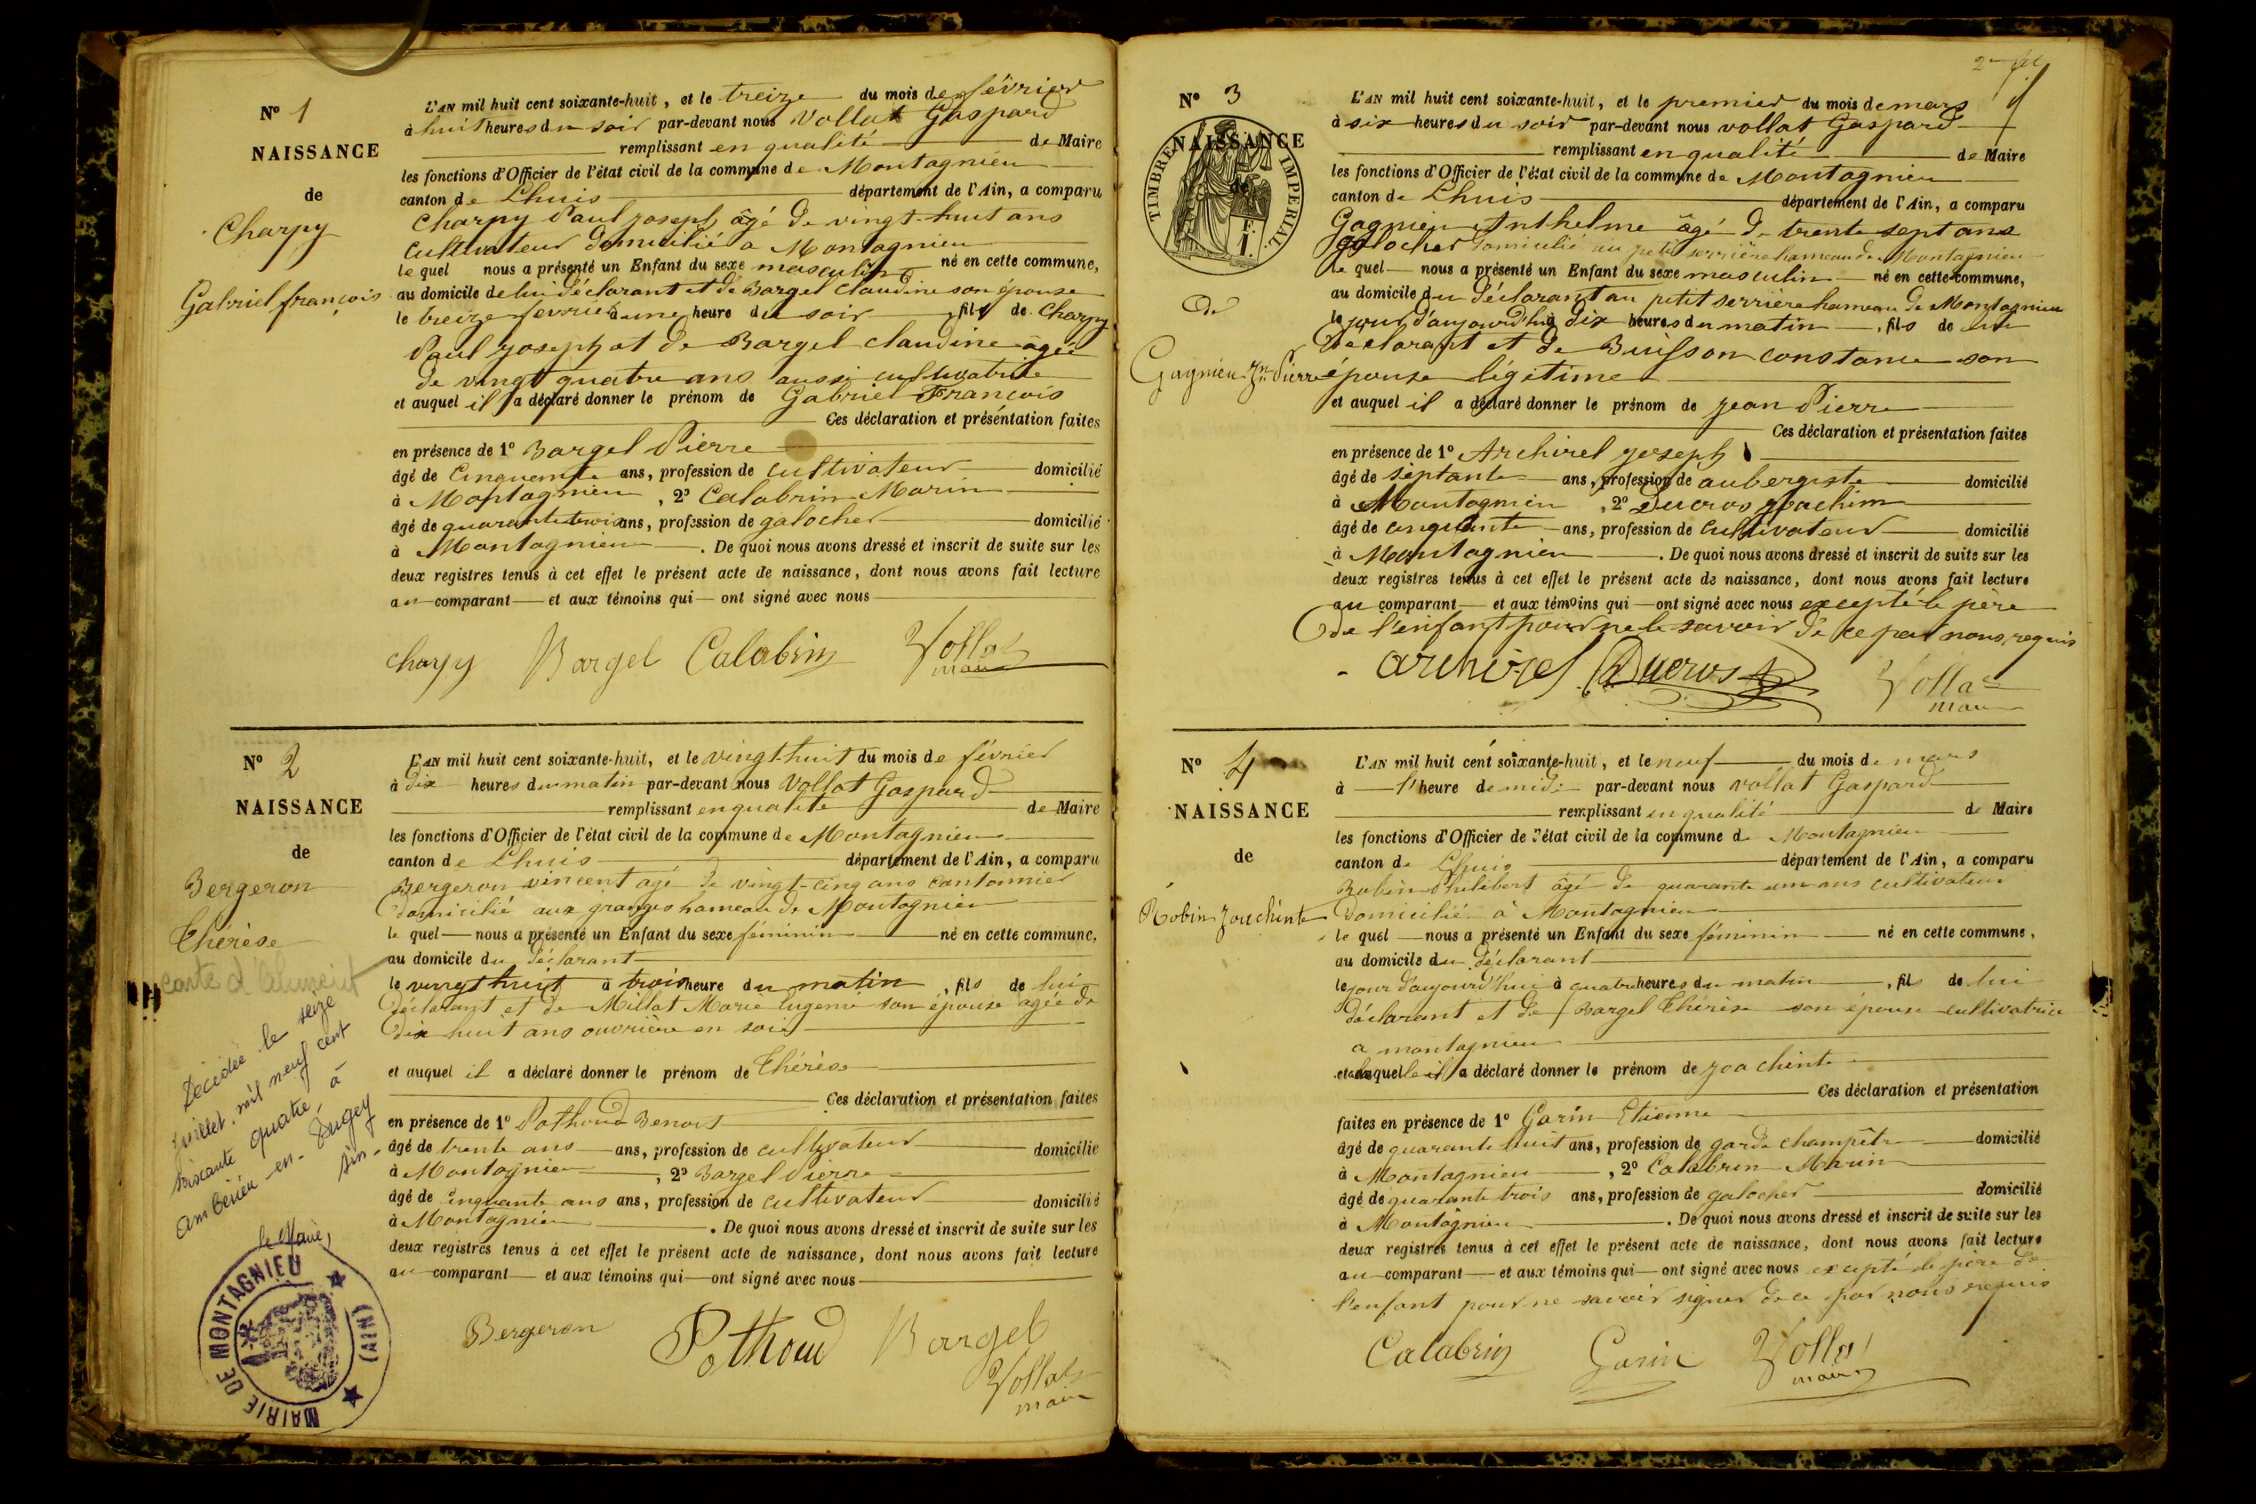 N° 1
NAISSANCE
de
Charpy
Gabriel françois
L'AN mil huit cent soixante-huit, et le treize du mois de février
à huit heures du soir par-devant nous Vollat Gaspard
remplissant en qualité de Maire
les fonctions d'Officier de l'état civil de la commune de Montagnieu
canton de Lhuis département de l'Ain, a comparu
Charpy Paul joseph âgé de vingt-huit ans
Cultivateur domicilié a Montagnieu
le quel nous a présenté un Enfant du sexe masculin né en cette commune,
au domicile de lui déclarant et de Bargel Claudine son épouse
le treize fevrier à une heure du soir fils de Charpy
Paul joseph et de Bargel claudine agée
de vingt quatre ans aussi cultivatrice
et auquel il a déclaré donner le prénom de Gabriel François
Ces déclaration et présentation faites
en présence de 1° Bargel Pierre
âgé de Cinquante ans, profession de cultivateur domicilié
à Montagnieu, 2° Calabrin Marin
âgé de quarante trois ans, profession de galocher domicilié
à Montagnieu. De quoi nous avons dressé et inscrit de suite sur les
deux registres tenus à cet effet le présent acte de naissance, dont nous avons fait lecture
au comparant et aux témoins qui ont signé avec nous
Charpy Bargel Calabrin Vollat
maire
N° 2
NAISSANCE
de
Bergeron
Thérèse
carte d'
Décédée le seize
juillet mil neuf cent
soixante quatre, à
Ambérieu-en-Bugey
Ain-
le Maire,
MAIRIE DE MONTAGNIEU
(AIN)
L'AN mil huit cent soixante-huit, et le vingt-huit du mois de février
à dix heures du matin par-devant nous Vollat Gaspard
remplissant en qualité de Maire
les fonctions d'Officier de l'état civil de la commune de Montagnieu
canton de Lhuis département de l'Ain, a comparu
Bergeron vincent agé de vingt-cinq ans cantonnier
domicilié aux granges hameau de Montagnieu
le quel nous a présenté un Enfant du sexe féminin né en cette commune,
au domicile du déclarant
le vingt huit à trois heure du matin, fils de lui
déclarant et de Millat Marie Eugenie son épouse agée de
dix huit ans ouvrière en soie
et auquel il a déclaré donner le prénom de Thérèse
Ces déclaration et présentation faites
en présence de 1° Pothoud Benoit
âgé de trente ans ans, profession de cultivateur domicilié
à Montagnieu, 2° Bargel Pierre
âgé de cinquante ans ans, profession de cultivateur domicilié
à Montagnieu. De quoi nous avons dressé et inscrit de suite sur les
deux registres tenus à cet effet le présent acte de naissance, dont nous avons fait lecture
au comparant et aux témoins qui ont signé avec nous
Bergeron Pothoud Bargel
Vollat
maire
N° 3
NAISSANCE
de
TIMBRE IMPERIAL
1 F.
de
Gagnieu Jn Pierre
L'AN mil huit cent soixante-huit, et le premier du mois de mars
à six heures du soir par-devant nous vollat Gaspard
remplissant en qualité de Maire
les fonctions d'Officier de l'état civil de la commune de Montagnieu
canton de Lhuis département de l'Ain, a comparu
Gagnieu Anthelme âgé de trente sept ans
galocher domicilié au petit serrière hameau de Montagnieu
le quel nous a présenté un Enfant du sexe masculin né en cette commune,
au domicile du déclarant au petit serrière hameau de Montagnieu
le jour d'aujourd'hui à dix heures du matin, fils de
déclarant et de Buisson constance son
épouse légitime
et auquel il a déclaré donner le prénom de jean Pierre
Ces déclaration et présentation faites
en présence de 1° Archirel joseph
âgé de septante ans, profession de aubergiste domicilié
à Montagnieu, 2° Ducros joachim
âgé de cinquante ans, profession de cultivateur domicilié
à Montagnieu. De quoi nous avons dressé et inscrit de suite sur les
deux registres tenus à cet effet le présent acte de naissance, dont nous avons fait lecture
au comparant et aux témoins qui ont signé avec nous excepté le père
de l'enfant pour ne le savoir de ce par nous requis
archirel Ducros Vollat
maire
N° 4
NAISSANCE
de
Robin Joachinte
L'AN mil huit cent soixante-huit, et le neuf du mois de mars
à l'heure de midi par-devant nous vollat Gaspard
remplissant en qualité de Maire
les fonctions d'Officier de l'état civil de la commune de Montagnieu
canton de Lhuis département de l'Ain, a comparu
Robin Philibert âgé de quarante un ans cultivateur
Domicilié à Montagnieu
le quel nous a présenté un Enfant du sexe féminin né en cette commune,
au domicile du déclarant
le jour d'aujourd'hui à quatre heures du matin, fils de lui
déclarant et de Bargel Thérèse son épouse cultivatrice
a montagnieu
et à laquelle il a déclaré donner le prénom de joachinte
Ces déclaration et présentation
faites en présence de 1° Garin Etienne
âgé de quarante huit ans, profession de garde champêtre domicilié
à Montagnieu, 2° Calabrin Marin
âgé de quarante trois ans, profession de galocher domicilié
à Montagnieu. De quoi nous avons dressé et inscrit de suite sur les
deux registres tenus à cet effet le présent acte de naissance, dont nous avons fait lecture
au comparant et aux témoins qui ont signé avec nous excepté le père de
l'enfant pour ne savoir signer de ce par nous requis
Calabrin Garin Vollat
maire